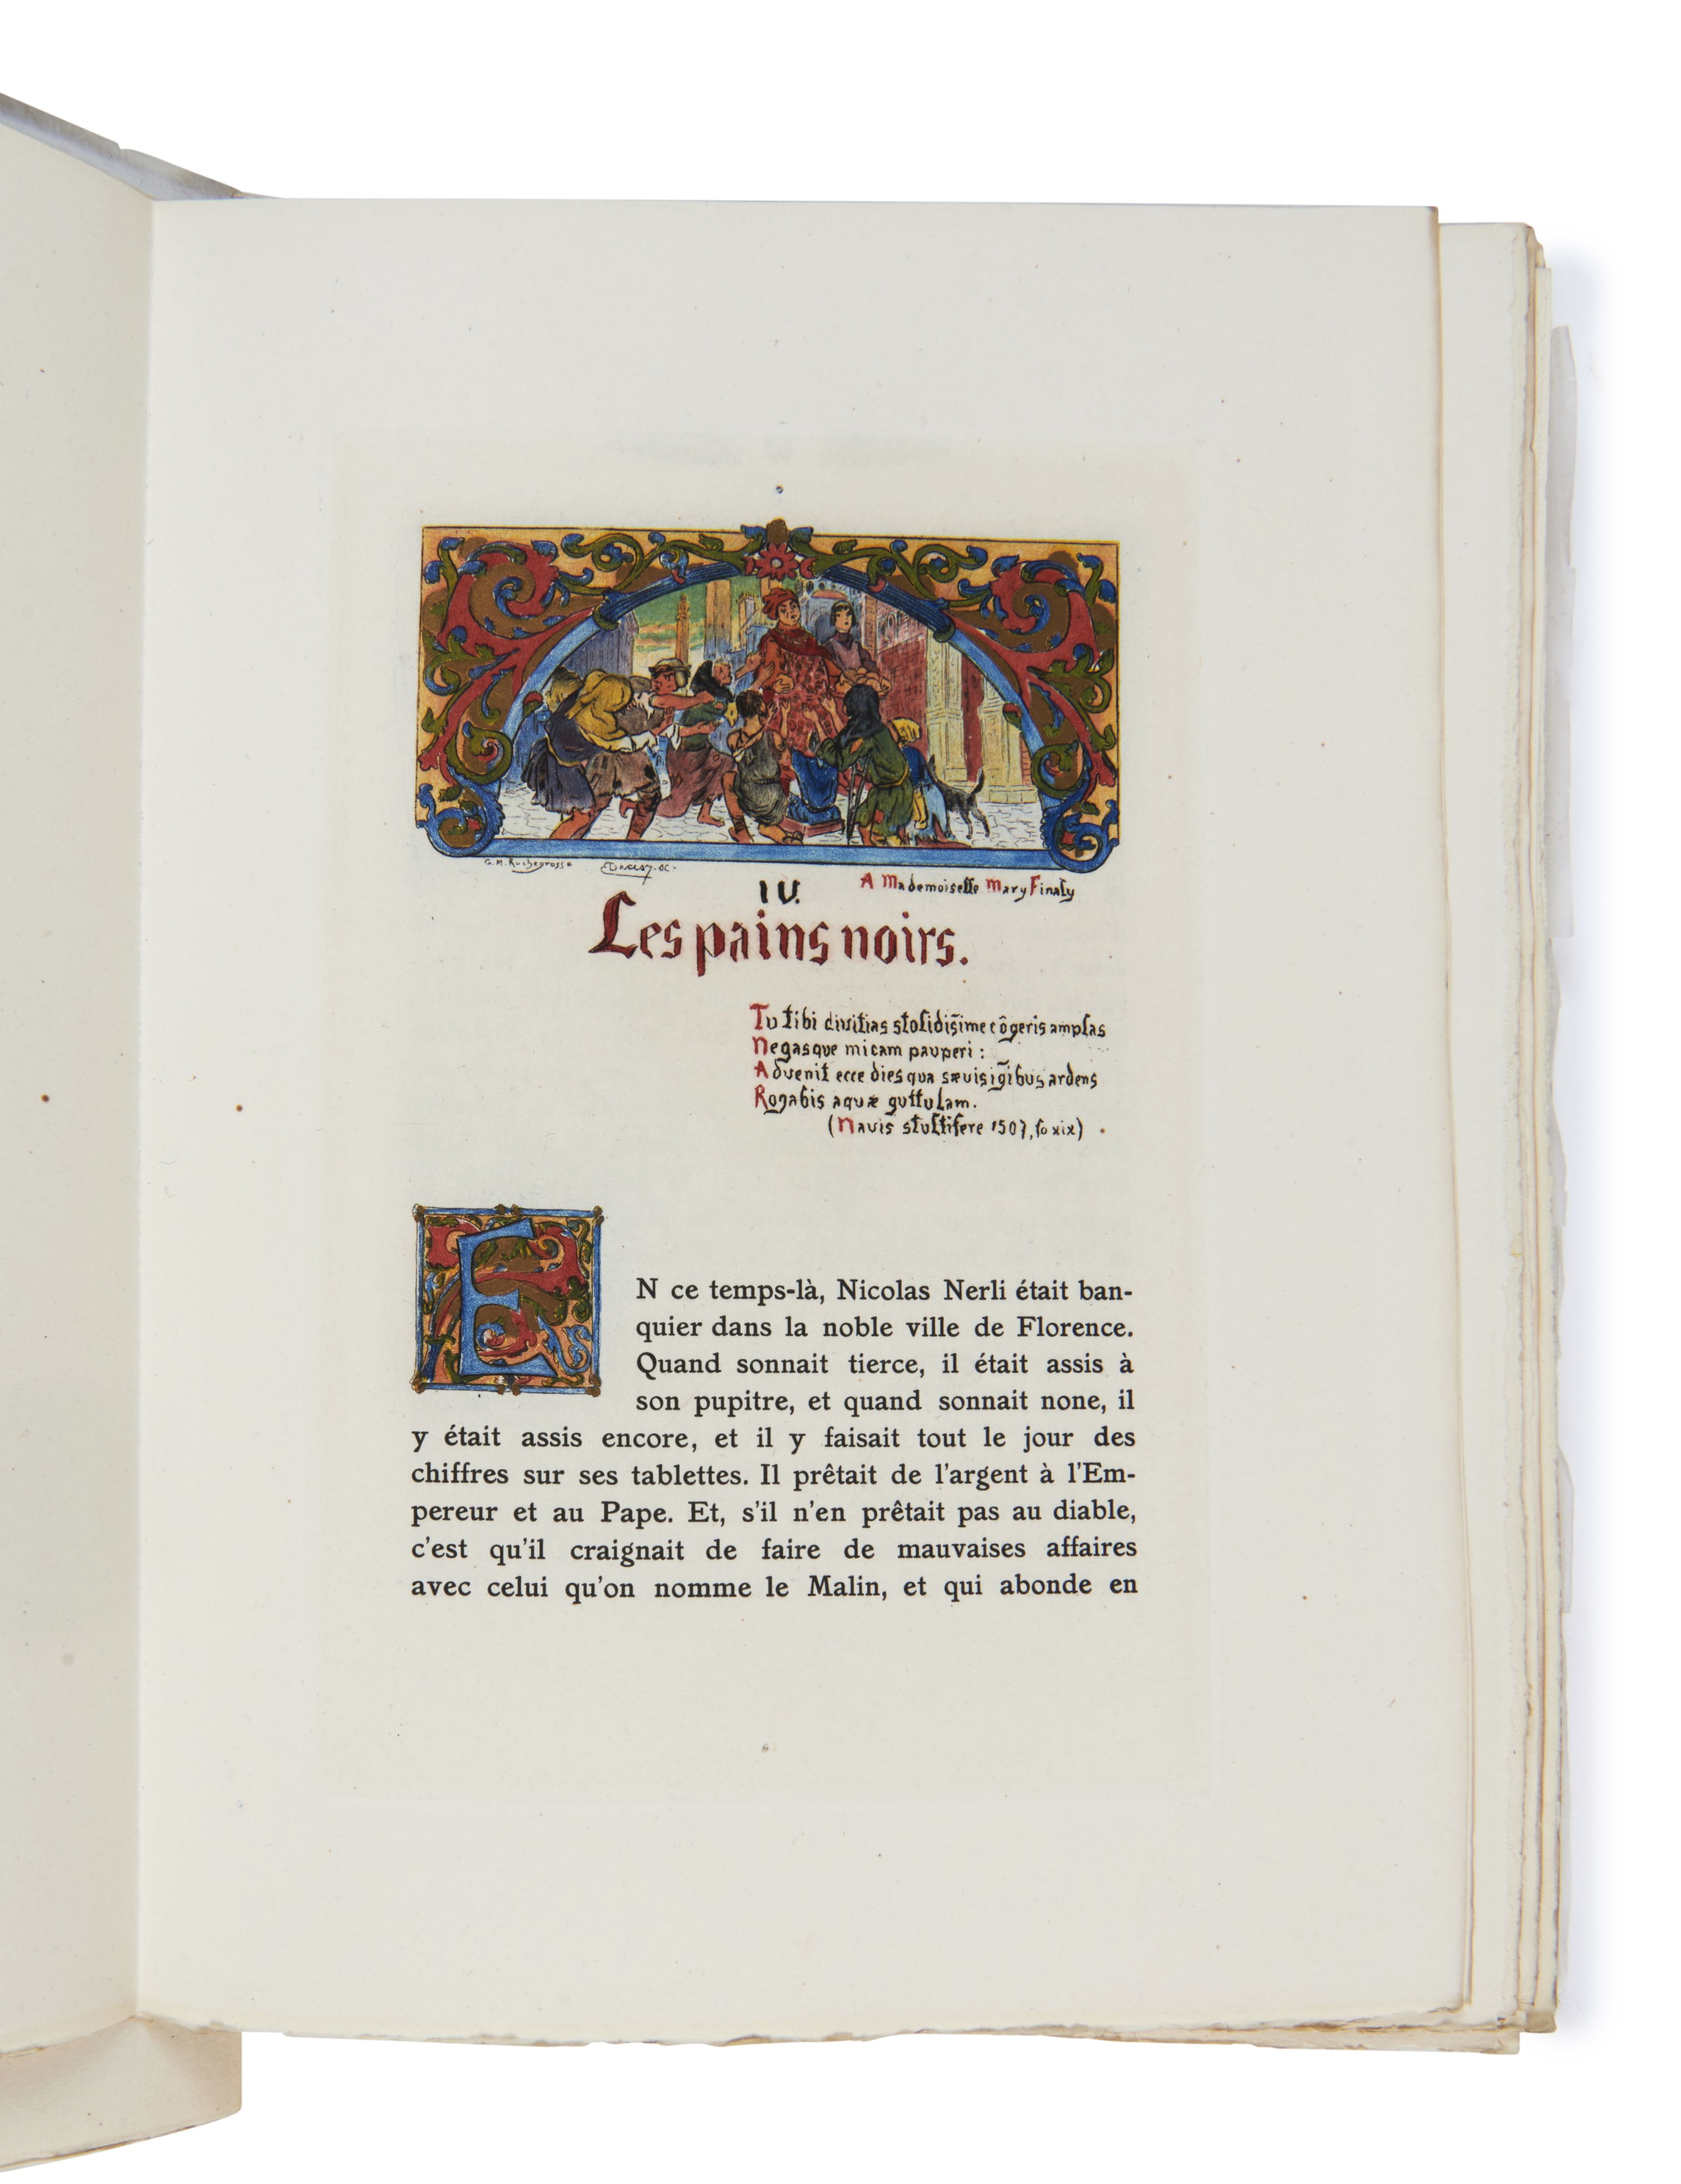 G. M. Rochegrosse
IV.
A Mademoiselle Mary Finaly
Les pains noirs.
Tu tibi divitias stolidis̃ime cõgeris amplas
Negasque micam pauperi :
Advenit ecce dies qua sævis ig̃ibus ardens
Rogabis aquæ guttulam.
(Navis stultifere 1507, fo xix)
EN ce temps-là, Nicolas Nerli était ban-
quier dans la noble ville de Florence.
Quand sonnait tierce, il était assis à
son pupitre, et quand sonnait none, il
y était assis encore, et il y faisait tout le jour des
chiffres sur ses tablettes. Il prêtait de l'argent à l'Em-
pereur et au Pape. Et, s'il n'en prêtait pas au diable,
c'est qu'il craignait de faire de mauvaises affaires
avec celui qu'on nomme le Malin, et qui abonde en